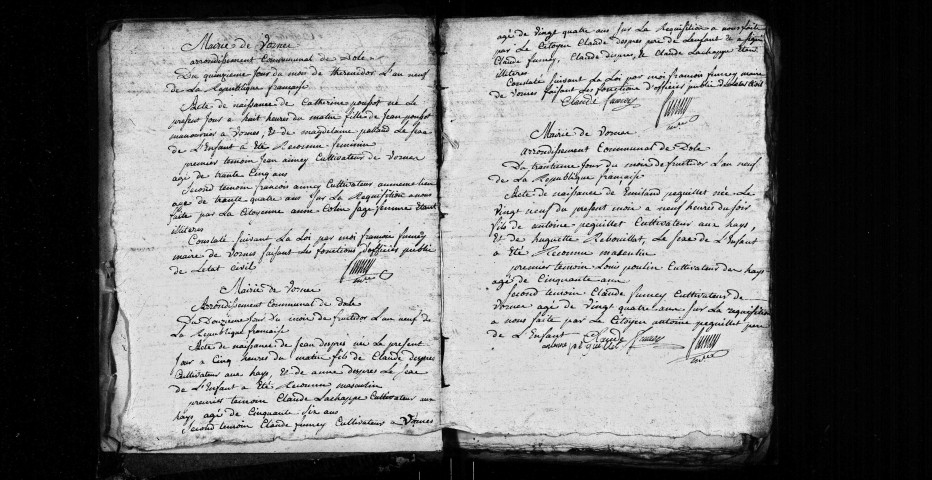 Mairie de Vornes
arrondissement Communal de Dole
Du quinzieme Jour du mois de thermidor L'an neuf
de La Republique française
Acte de naissance de Catherine poupot né Le
present Jour a huit heures du matin fille de Jean poupot
manouvrier a Vornes, et de magdelaine pallard Le sexe
de L'Enfant a Eté Reconnu feminin
premier temoin Jean aimey Cultivateur de Vornes
agé de trante Cinq ans
Second temoin francois aimey Cultivateur au meme lieu
age de trante quatre ans Sur La Requisition a nous
faite par La Citoyenne anne Colin sage femme Etant
illiteres
Constaté Suivant La Loi par moi francois fumey
maire de Vornes faisant Les fonctions d'officier public
de Letat civil
Mairie de Vornes
Arrondissement Communal de Dole
Du Douzieme Jour du mois de fructidor L'an neuf de
La Republique francaise
Acte de naissance de Jean despres né Le present
Jour a Cinq heures du matin fils de Claude despres
Cultivateur aux hays, et de anne despres Le sexe
de L'Enfant a Eté Reconnu masculin
premier temoin Claude Lachappe Cultivateur aux
hays agé de Cinquante Six ans
Second temoin Claude fumey Cultivateur a Vornes
agé de Vingt quatre ans Sur La Requisition a nous faite
par Le Citoyen Claude despres pere de Lenfant
Claude fumey, Claude despres, & Claude Lachappe Etant
illiteres
Constaté Suivant La Loi par moi francois fumey maire
de Vornes faisant Les fonctions d'officier public
Claude fumey
Mairie de Vornes
arrondissement Communal de Dole
Du trantieme Jour du mois de fructidor L'an neuf
de La Republique française
Acte de naissance de Emiland peguillet née Le
Vingt neuf du present mois a neuf heures du soir
fils de antoine peguillet Cultivateur aux hays,
Et de huguette Rebouillat, Le sexe de L'Enfant
a Eté Reconnu masculin
premier temoin Louis poulin Cultivateur des hays
agé de Cinquante ans
Second temoin Claude fumey Cultivateur de
Vornes agé de Vingt quatre ans Sur La requisition
a nous faite par Le Citoyen antoine peguillet pere
de L'Enfant Claude fumey
antoine peguillet